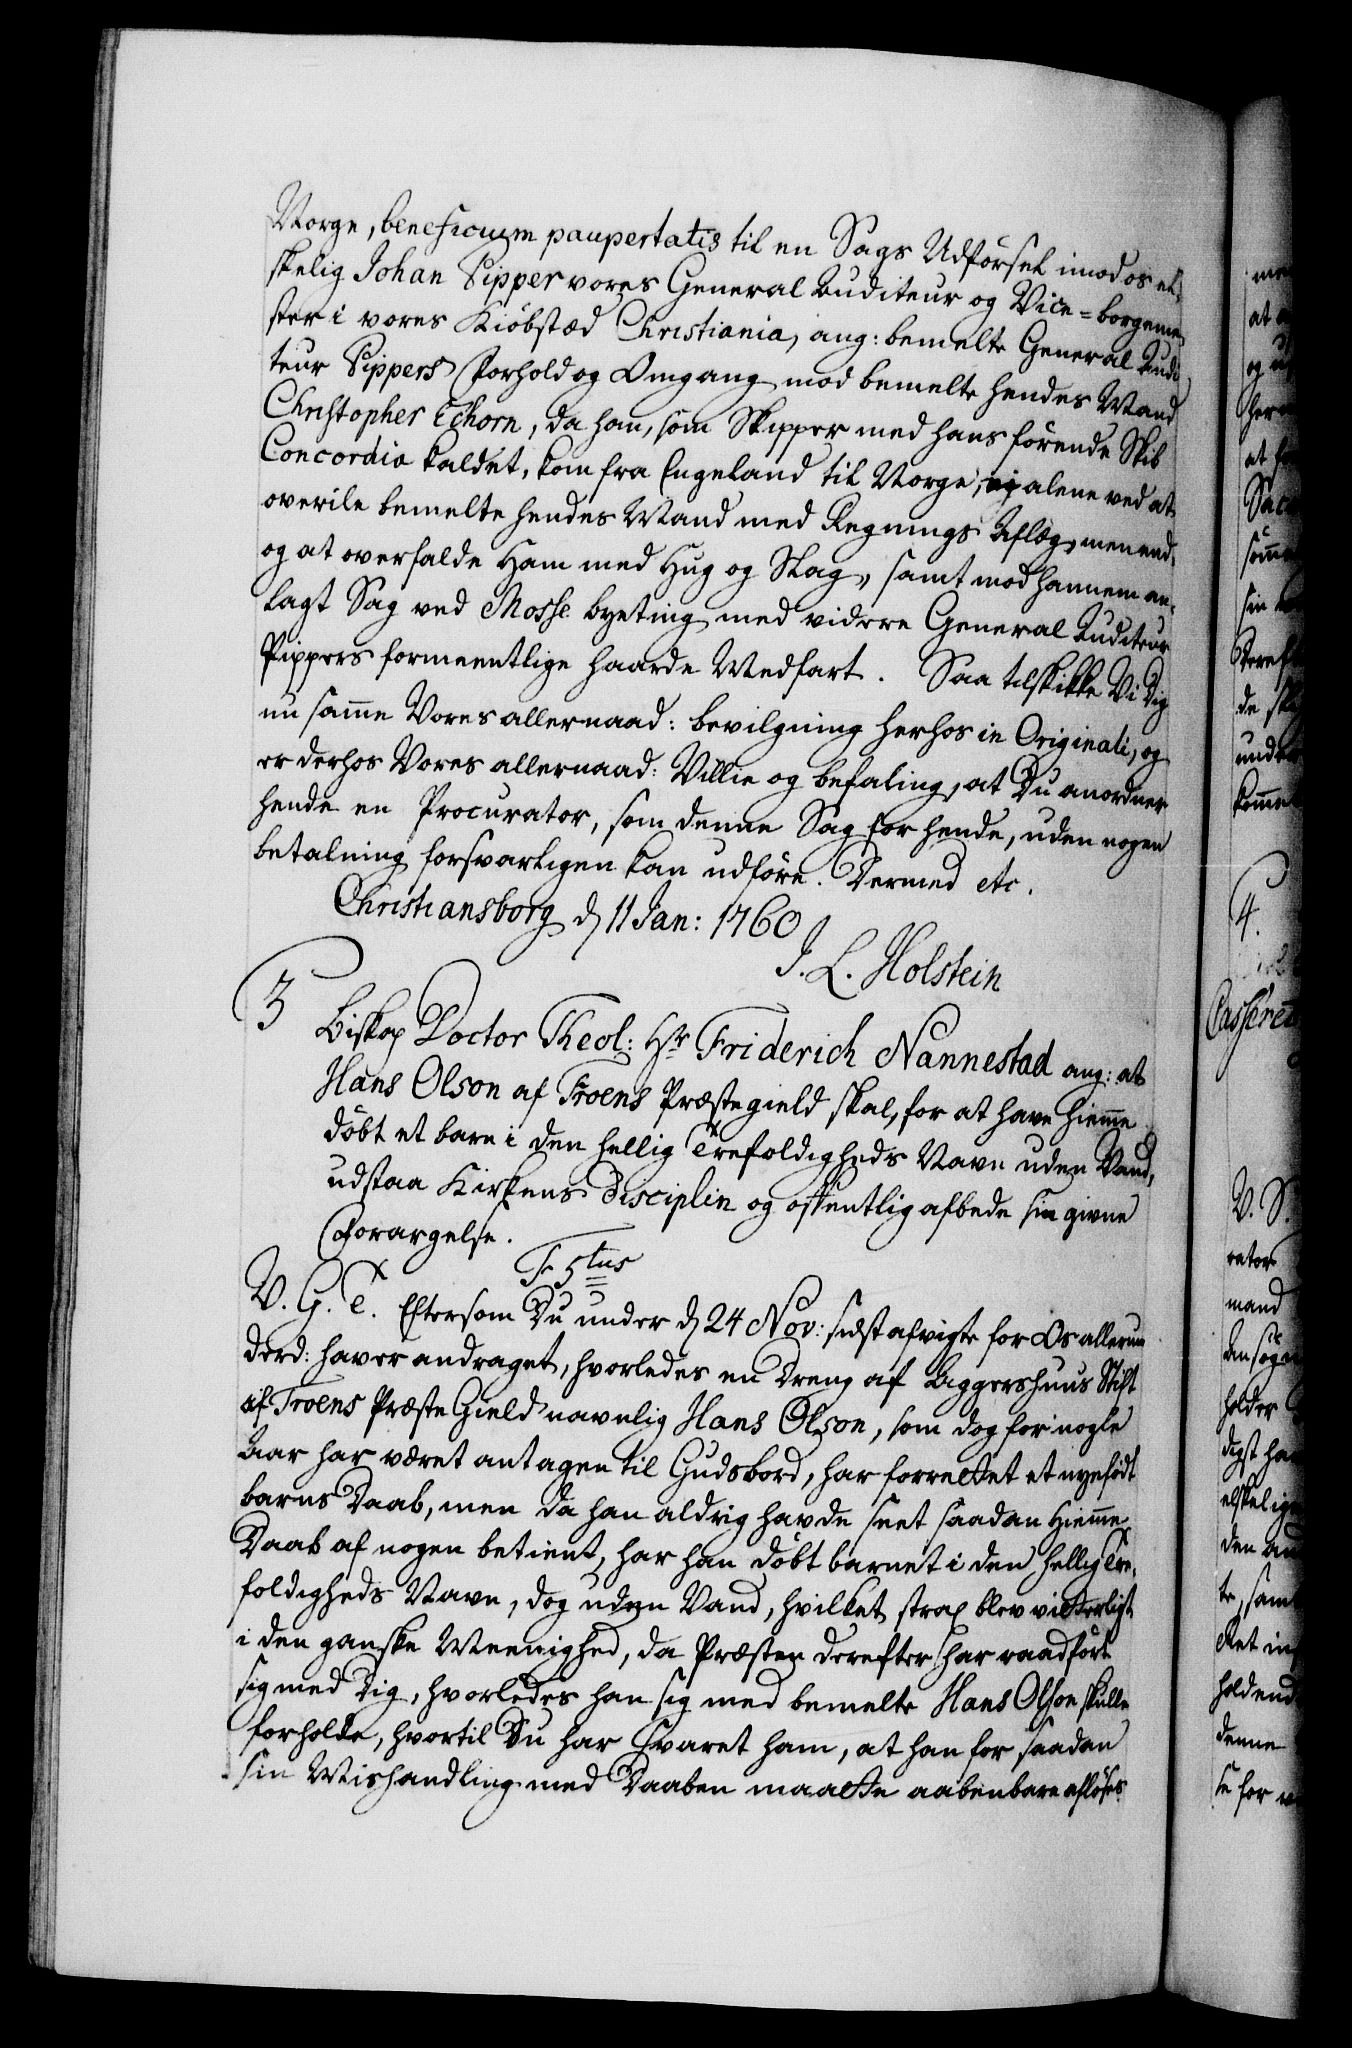 Norge, beneficium paupertatis til en Sags Udførsel imod os el-
skelig Johan Pipper vores General Auditeur og Vice-borgeme-
ster i vores Kiöbstæd Christiania, ang: bemelte General Audi-
teur Pippers Forhold og Omgang mod bemelte hendes Mand
Christopher Echorn, da han, som Skipper med hans førende Skib
Concordia kaldet, kom fra Engeland til Norge, ej alene ved at
overile bemelte hendes Mand med Regnings Aflæg, men end-
og at overfalde Ham med Hug og Slag, samt mod hannem an-
lagt Sag ved Mosse byeting med videre General Auditeur
Pippers formeentlige haarde Medfart. Saa tilskikke Vi Dig
nu samme Vores allernaad: bevilgning herhos in Originali, og
er derhos Vores allernaad: Villie og befaling, at Du anordner
hende en Procurator, som denne Sag for hende, uden nogen
betalning forsvarligen kan udføre. Dermed etc.
Christiansborg d 11 Jan: 1760
J. L. Holstein
3
Biskop Doctor Theol: Hr Friderich Nannestad ang: at
Hans Olson af Troens Præstegield skal, for at have hiemme
døbt et barn i den hellig Trefoldigheds Navn uden Vand,
udstaa Kirkens Disciplin og offentlig afbede sin givne
Forargelse.
Fr 5tus
V. G. T. Eftersom Du under d 24 Nov: sidstafvigte for Os allerun-
derd: haver andraget, hvorledes en Dreng af Aggershuus Stift
af Troens Præste Gield navnlig Hans Olson, som dog for nogle
Aar har været antagen til Gudsbord, har forrettet et nyefødt
barns Daab, men da han aldrig havde seet saadan Hiemme
Daab af nogen betient, har han døbt barnet i den hellig Tre-
foldigheds Navn, dog uden Vand, hvilket strax blev vitterligt
i den ganske Meenighed, da Præsten derefter har raadført
sig med Dig, hvorledes han sig med bemelte Hans Olson skulle
forholde, hvortil Du har Svaret ham, at han for saadan
sin Mishandling med Daaben maatte aabenbare afløses